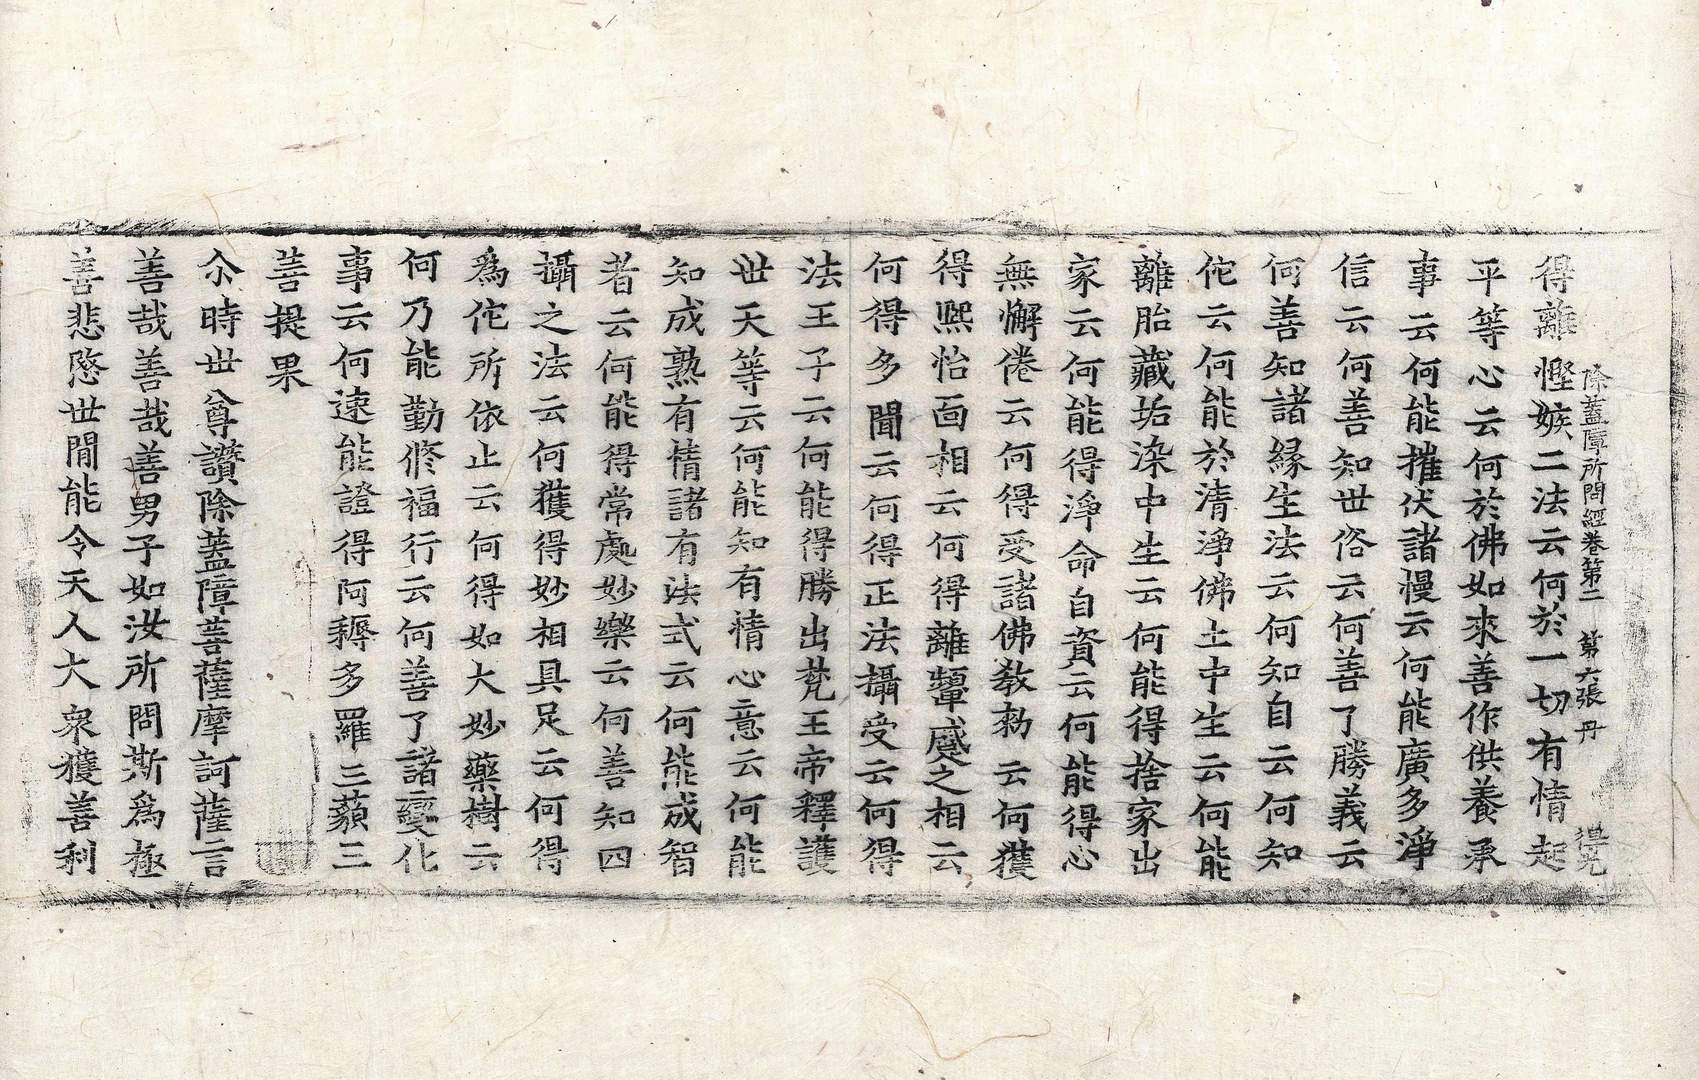 除蓋障所問經卷第二　第六張　丹　得光
得離慳嫉二法云何於一切有情起
平等心云何於佛如來善作供養承
事云何能摧伏諸慢云何能廣多淨
信云何善知世俗云何善了勝義云
何善知諸緣生法云何知自云何知
佗云何能於清淨佛土中生云何能
離胎藏垢染中生云何能得捨家出
家云何能得淨命自資云何能得心
無懈倦云何得受諸佛教勑云何獲
得熙怡面相云何得離顰蹙之相云
何得多聞云何得正法攝受云何得
法王子云何能得勝出梵王帝釋護
世天等云何能知有情心意云何能
知成熟有情諸有法式云何能成智
者云何能得常處妙樂云何善知四
攝之法云何獲得妙相具足云何得
爲佗所依止云何得如大妙藥樹云
何乃能勤修福行云何善了諸變化
事云何速能證得阿耨多羅三藐三
菩提果
尒時世尊讚除蓋障菩薩摩訶薩言
善哉善哉善男子如汝所問斯爲極
善悲愍世間能令天人大衆獲善利